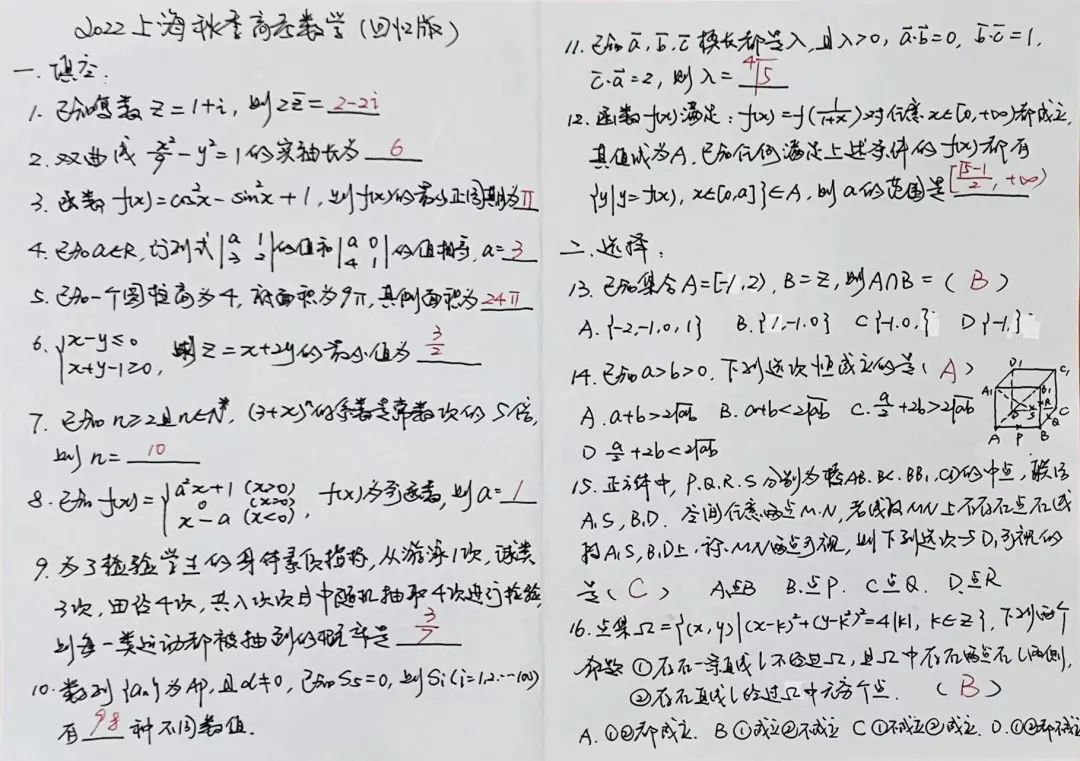 2022上海秋季高考数学(回忆版)
一.填空.
1. 已知复数 z=1+i, 则2z̅= 2-2i
2. 双曲线 x²/9-y²=1的实轴长为 6
3. 函数 f(x)=cos²x-sin²x+1, 则f(x)的最小正周期为π
4. 已知a∈R, 行列式|a 1; 3 2|的值和|a 0; 4 1|的值相等, a=3
5. 已知一个圆柱高为4, 底面积为9π, 其侧面积为24π
6. {x-y≤0 x+y-1≥0, 则z=x+2y的最小值为 3/2
7. 已知n≥2且n∈N*, (3+x)ⁿ的系数是常数次的5倍,
则n= 10
8. 已知 f(x)={a²x+1 (x>0) 0 (x=0) x-a (x<0), f(x)为奇函数, 则a=1
9. 为了检验学生的身体素质指标, 从游泳1次, 球类
3次, 田径4次, 共八次次目中随机抽取4次进行检验,
则每一类运动都被抽到的概率是 3/7
10. 数列{an}为AP, 且d≠0, 已知S5=0, 则Si(i=1,2…100)
有 98 种不同数值.
11. 已知a̅,b̅,c̅模长都是λ, 且λ>0, a̅·b̅=0, b̅·c̅=1,
c̅·a̅=2, 则λ=⁴√5
12. 函数f(x)满足: f(x)=f(1/(1+x))对任意x∈[0,+∞)都成立,
其值域为A, 已知任何满足上述条件的f(x)都有
{y|y=f(x), x∈[0,a]}∈A, 则a的范围是[(√5-1)/2, +∞)
二.选择:
13. 已知集合A=[-1,2), B=Z, 则A∩B=( B )
A. {-2,-1,0,1} B. {1,-1,0} C {-1,0,} D {-1,}
14. 已知a>b>0, 下列选次恒成立的是( A )
A. a+b>2√ab B. a+b<2√ab C. a/2+2b>2√ab
D a/2+2b<2√ab
D1 C1 A1 B1 D S R C Q A P B
15. 正方体中, P.Q.R.S分别为棱AB.BC.BB1,CD的中点, 联结
A1S, B1D. 空间任意两点M.N, 若线段MN上不存在点在线
段A1S, B1D上, 称MN两点可视, 则下列选次与D1可视的
是( C ) A点B B.点P. C点Q. D.点R
16. 点集Ω={(x,y)|(x-k)²+(y-k²)²=4|k|, k∈Z}, 下列两个
命题 ①存在一条直线l不经过Ω, 且Ω中存在两点在l两侧,
②存在直线l经过Ω中无穷个点. ( B )
A. ①②都成立. B ①成立②不成立 C ①不成立②成立. D. ①②都不成立